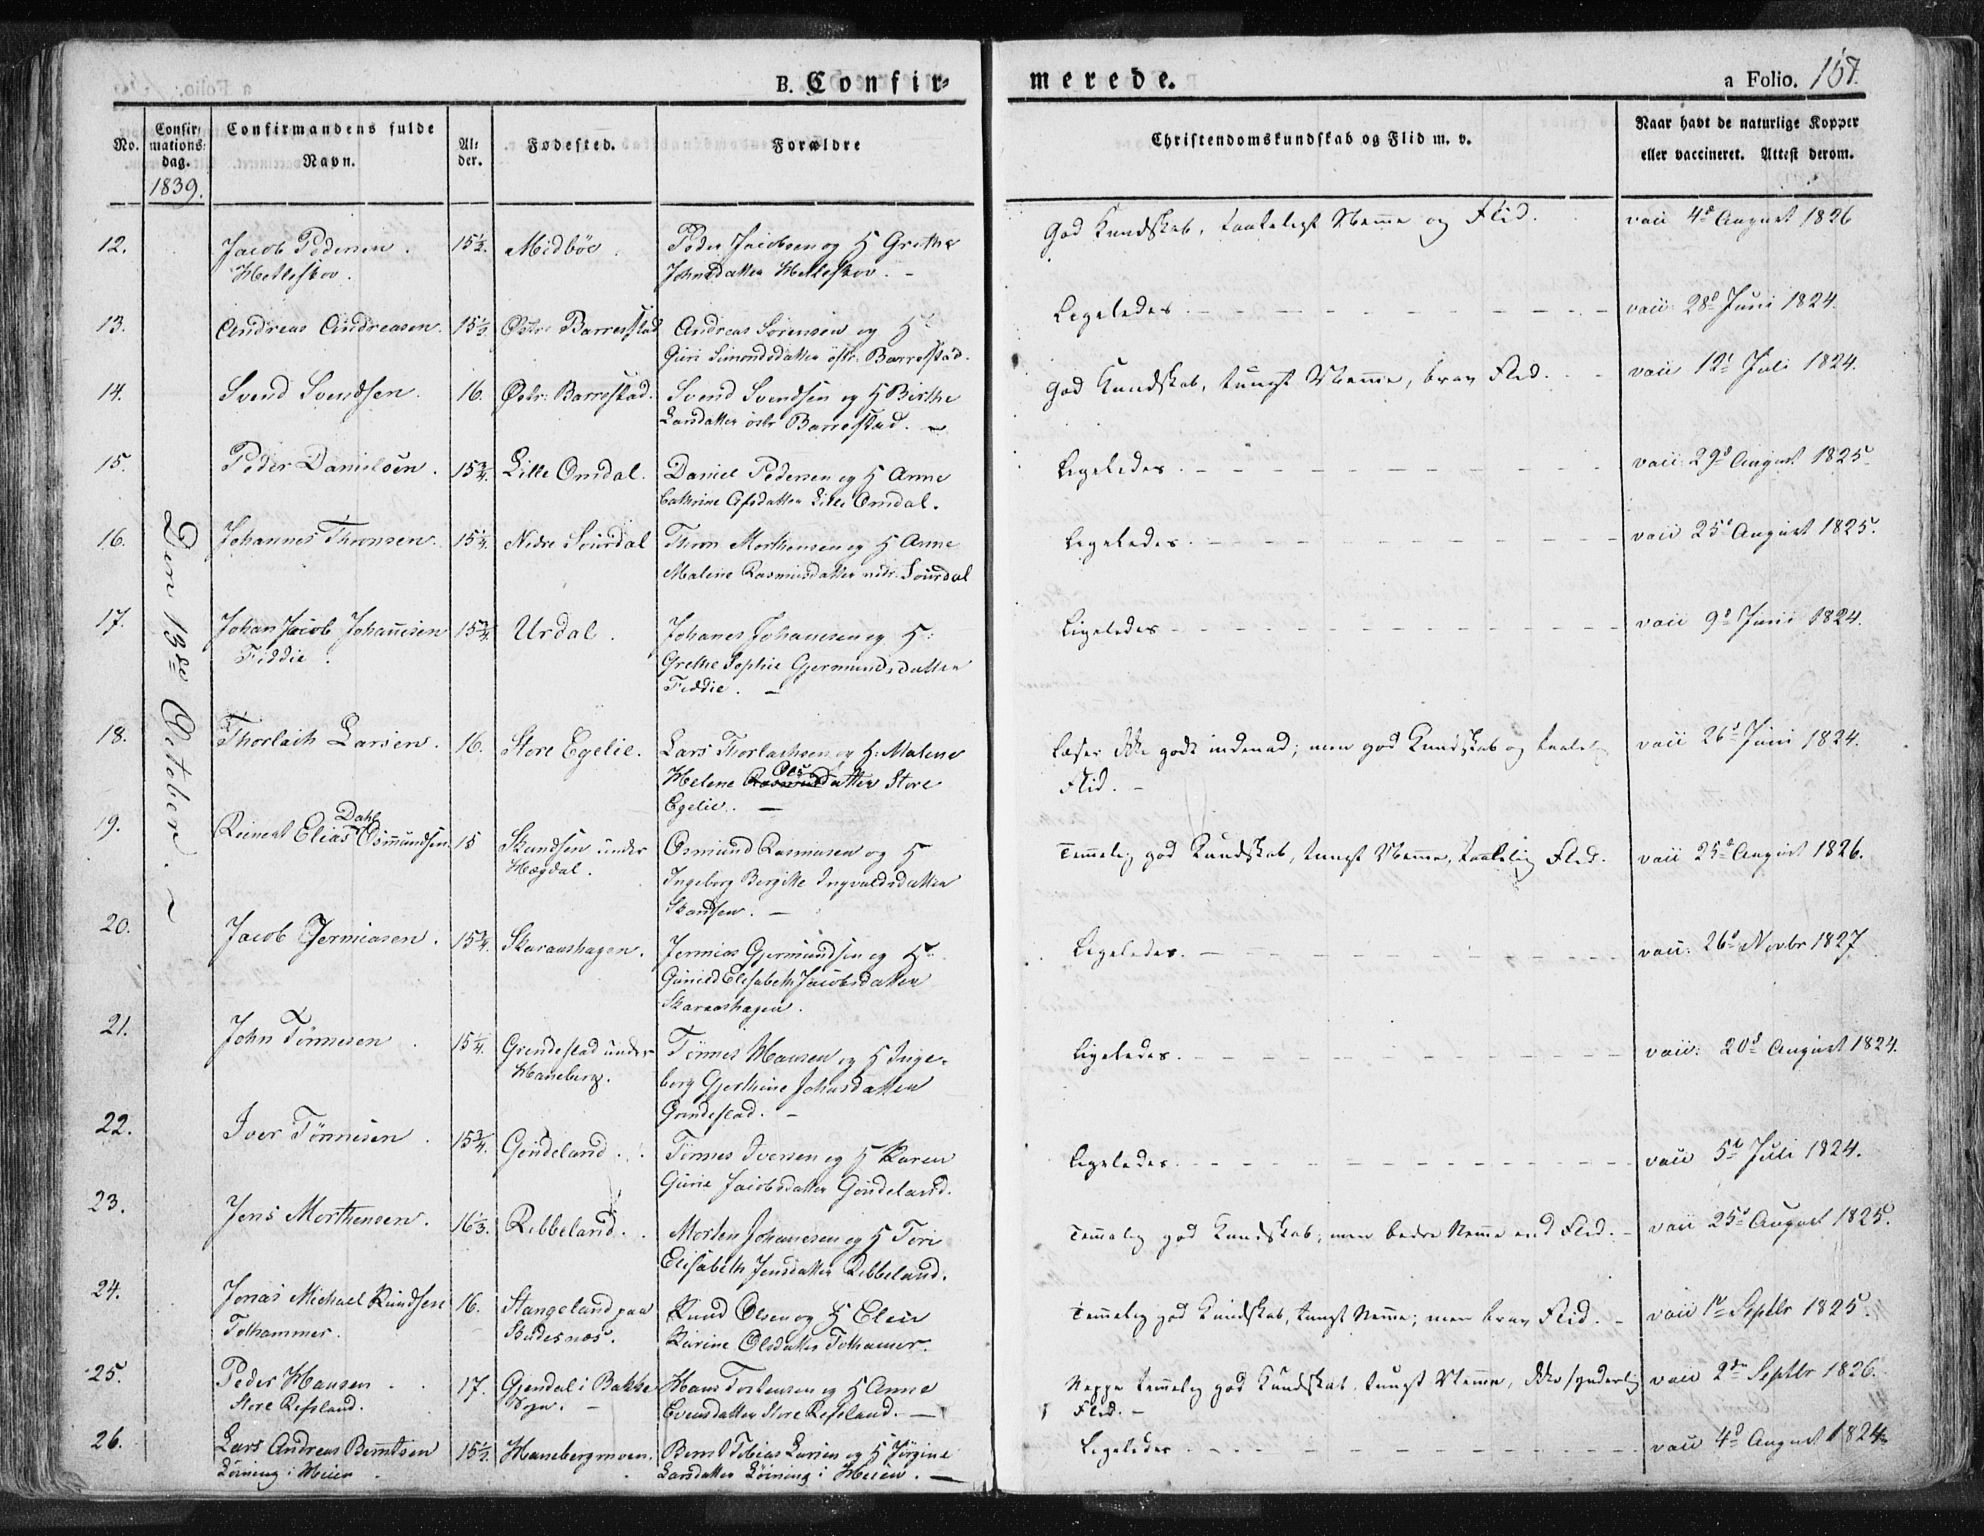 B. Confirmerede.
a Folio. 167.
No.
Confirmations: dag.
1839.
Confirmandens fulde Navn.
Alder.
Fødested.
Forældre
Christendomskundskab og Flid m. v.
Naar havt de naturlige Kopper eller vaccineret. Attest derom.
Den 13de October.
12. Jacob Pedersen Hetleskov. 15½. Midböe. Peder Jacobsen og H Grethe Johnsdatter Hetleskov. God Kundskab, taaleligt Nemme og Flid. vacc 4d August 1826
13. Andreas Andreasen. 15½. Østr: Barrestad Andreas Sörensen og H: Guri Simondsdatter östr: Barrestad. Ligeledes vacc: 28d Juni 1824.
14. Svend Svendsen. 16. Østr: Barrestad. Svend Svendsen og H Birthe Larsdatter östr Barrestad. God Kundskab, tungt Nemme, brav Flid. vacc 12t Juli 1824.
15. Peder Danielsen. 15¾. Lille Omdal. Daniel Pedersen og H Anne Cathrine Lille Omdal. Ligeledes vacc: 29d August 1825.
16. Johannes Thronsen. Nedre Sourdal Thron Morthensen og H Anne Malene Rasmusdatter nedr: Sourdal Ligeledes. vacc 25d August 1825.
17. Johan Jacob Johannesen Feddie. 15¾ Urdal. Johanes Johanesen og H: Grethe Sophie Gjermundsdatter Feddie. Ligeledes vacc 9d Juni 1824.
18. Thorlaich Larsen. 16. Store Egelie. Lars Thorlachsen og H: Malene Helene Olsdatter Store Egelie. Læser ikke godt indenad; men god Kundskab og Flid. vacc 26d Juni 1824.
19. Reinert Elias Dahl Osmundsen. 15 Skandsen under Hægdal. Osmund Rasmusen og H Ingeborg Bergitte Ingvaldsdatter Skandsen. Temmelig god Kundskab, tungt Nemme, taalelig Flid. vacc 25d August 1826.
20. Jacob Jermiasen. 15¾. Skaraashagen. Jermias Gjermundsen og H: Gunild Elisabeth Jacobsdatter Skaraashagen. Ligeledes. vacc: 26d Novbr 1827
21. John Tönnesen 15¼. Grendestad under Haneberg. Tönnes Hansen og H Ingeborg Gjerthine Johnsdatter Grendestad. Ligeledes. vacc: 20d August 1824.
22. Iver Tönnesen 15¾. Göndeland. Tönnes Iversen og H Karen Gurie Jacobsdatter Göndeland. Ligeledes. vacc 5te Juli 1824.
23. Jens Morthensen. 16⅓. Rebbeland. Morten Johanesen og H Tori Elisabeth Jensdatter Rebbeland. Temmelig god Kundskab; men bedre Nemme end Flid. vacc 25d August 1825.
24. Jonas Michael Knudsen Tolhammer. 16. Stangeland paa Budesnæs. Knud Olsen og H Elen Kirine Olsdatter Tolhamer. Temmelig god Kundskab, tungt Nemme; men brav Flid. vacc 1te Septbr 1825.
25. Peder Hansen Store Refsland. 17. Gjendal i Bakke Sogn. Hans Torkensen og H Anne Evensdatter Store Refsland. Neppe temmelig god Kundskab, tungt Nemme, ikke synderlig Flid. vacc 2den Septbr 1826.
26. Lars Andreas Berntsen Löining i Heien 15½. Hanebergmoen. Bernt Tobias Larsen og H Jörgine Larsdatter Löining i Heien. Ligeledes vacc 4d August 1824.